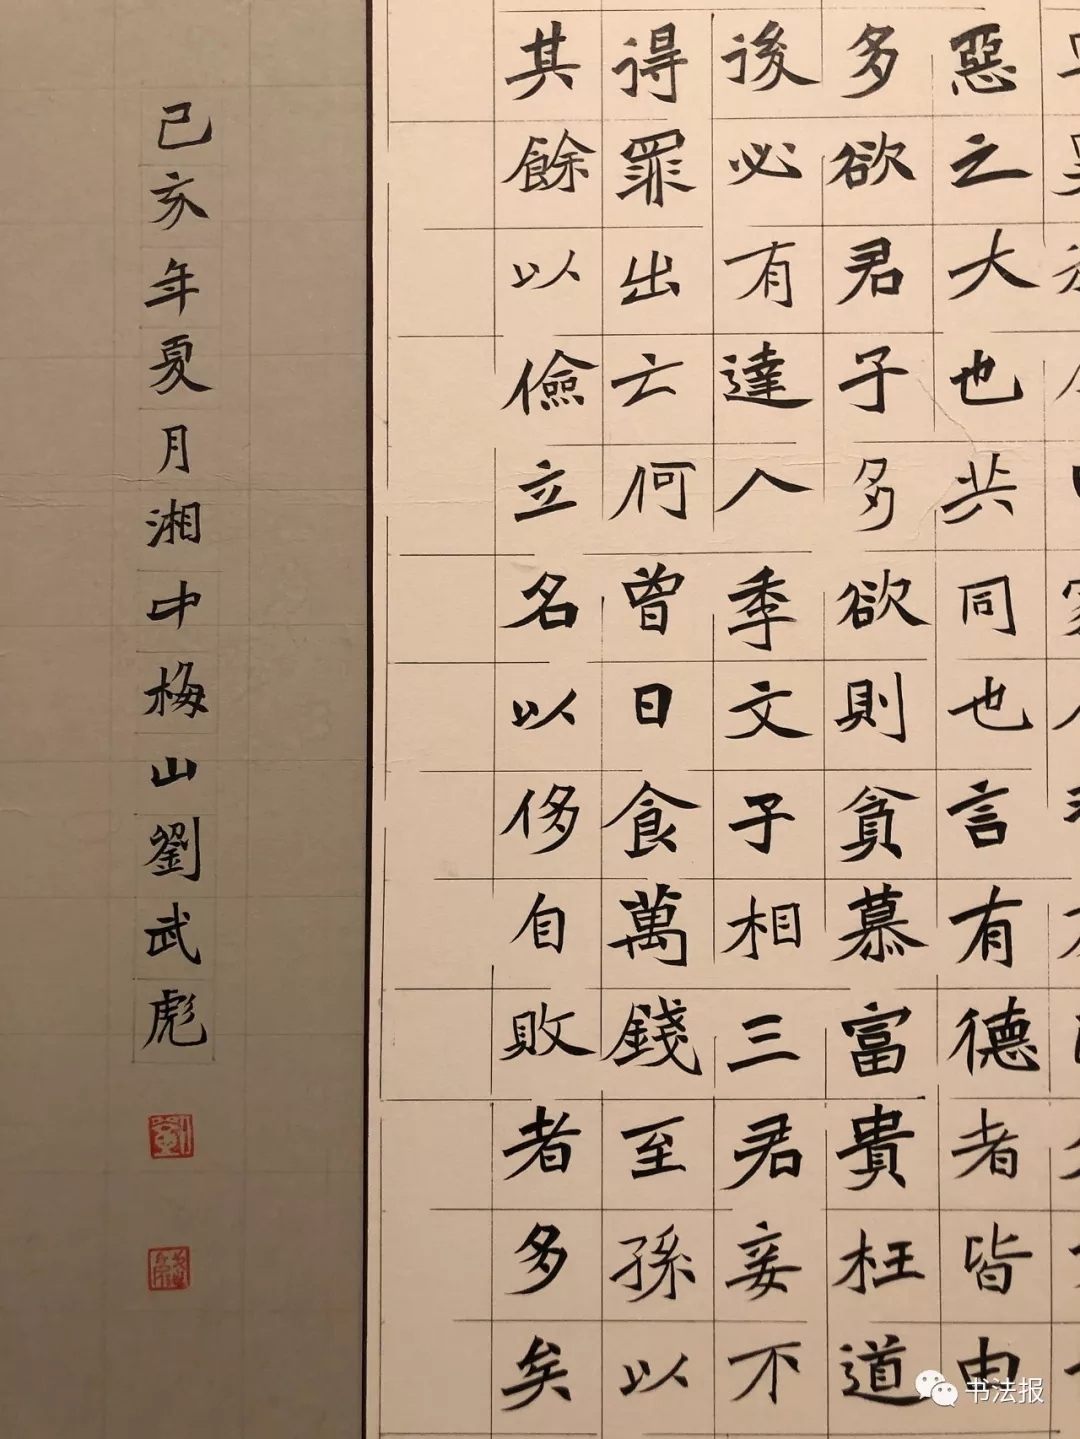 惡之大也共同也言有德者皆由
多欲君子多欲則貪慕富貴枉道
後必有達人季文子相三君妾不
得罪出亡何曾日食萬錢至孫以
其餘以儉立名以侈自敗者多矣
己亥年夏月湘中梅山劉武彪
劉
书法报